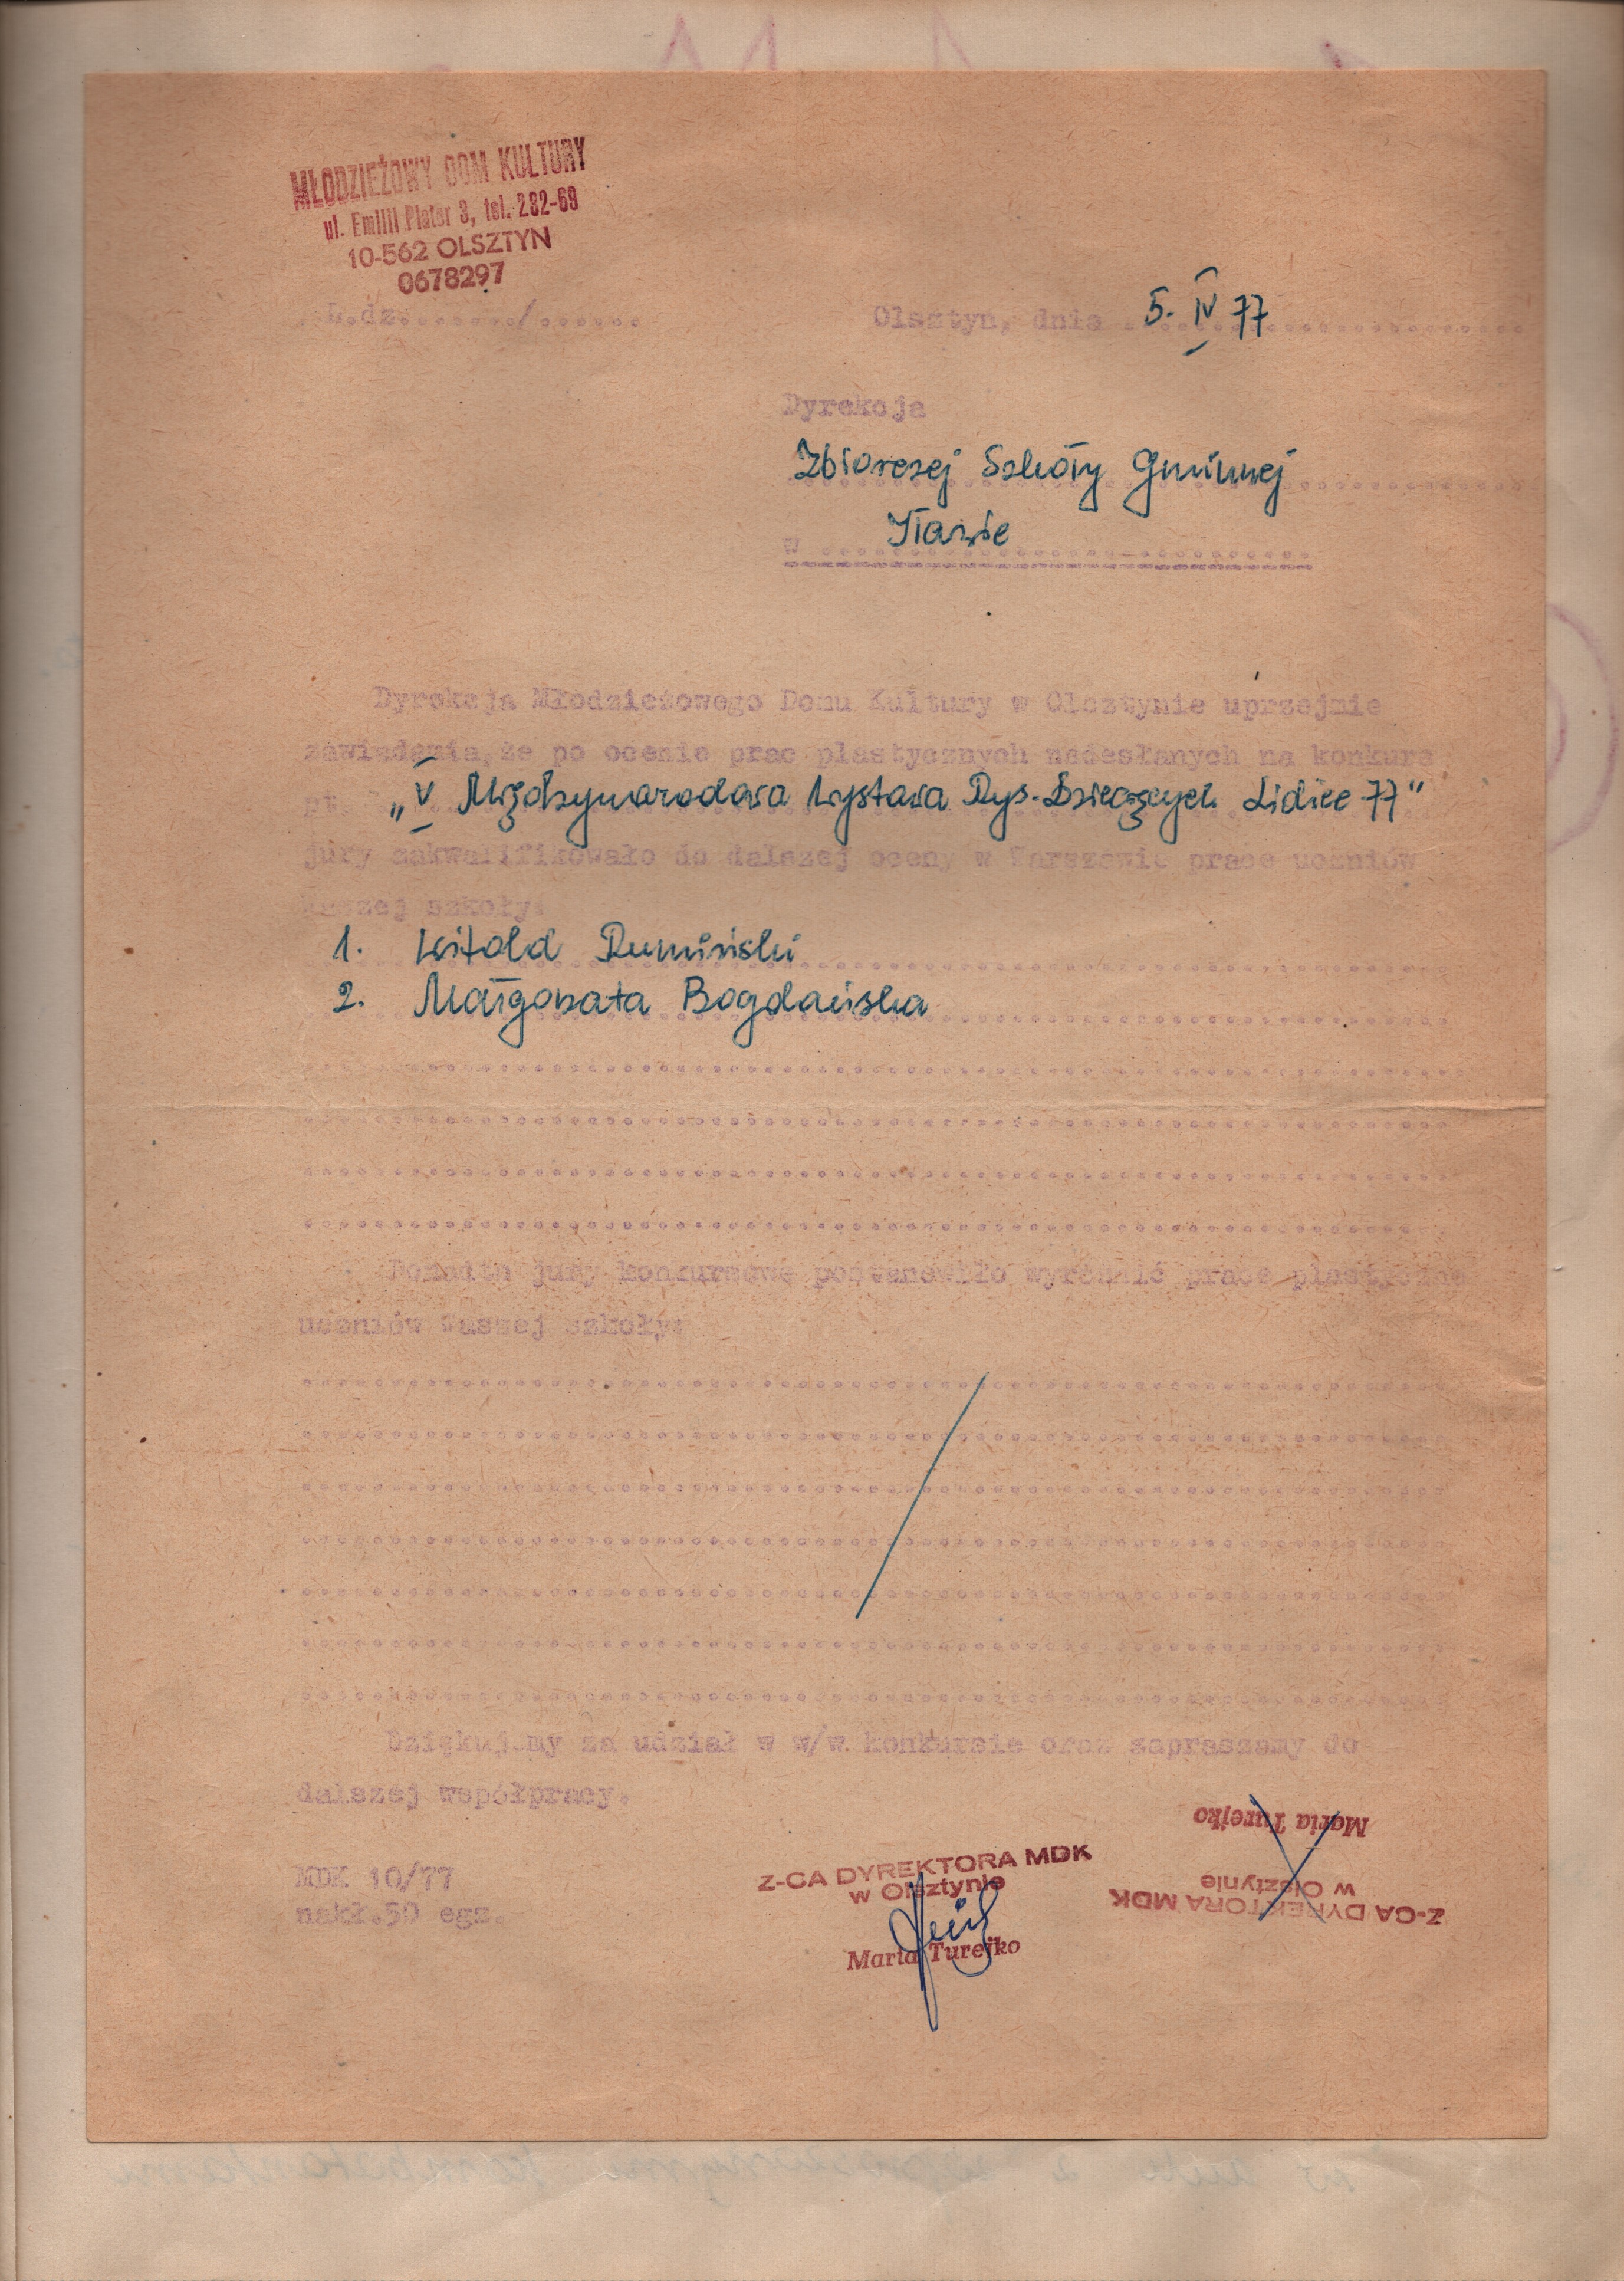 MŁODZIEŻOWY DOM KULTURY
ul. Emilii Plater 3, tel. 282-69
10-562 OLSZTYN
0678297
L.dz......./......
Olsztyn, dnia 5. IV 77
Dyrekcja
Zbiorczej Szkoły Gminnej
w Iławie
Dyrekcja Młodzieżowego Domu Kultury w Olsztynie uprzejmie
zawiadamia, że po ocenie prac plastycznych nadesłanych na konkurs
pt. „V Międzynarodowa Wystawa Rys. Dziecięcych Lidice 77"
jury zakwalifikowało do dalszej oceny w Warszawie prace uczniów
szkoły:
1. Witold Rumiński
2. Małgorzata Bogdańska
Ponadto jury konkursowe postanowiło wyróżnić prace plastyczne
uczniów Waszej szkoły:
Dziękujemy za udział w w/w. konkursie oraz zapraszamy do
dalszej współpracy.
Maria Turejko
w Olsztynie
Z-CA DYREKTORA MDK
MDK 10/77
nakł.50 egz.
Z-CA DYREKTORA MDK
w Olsztynie
Maria Turejko